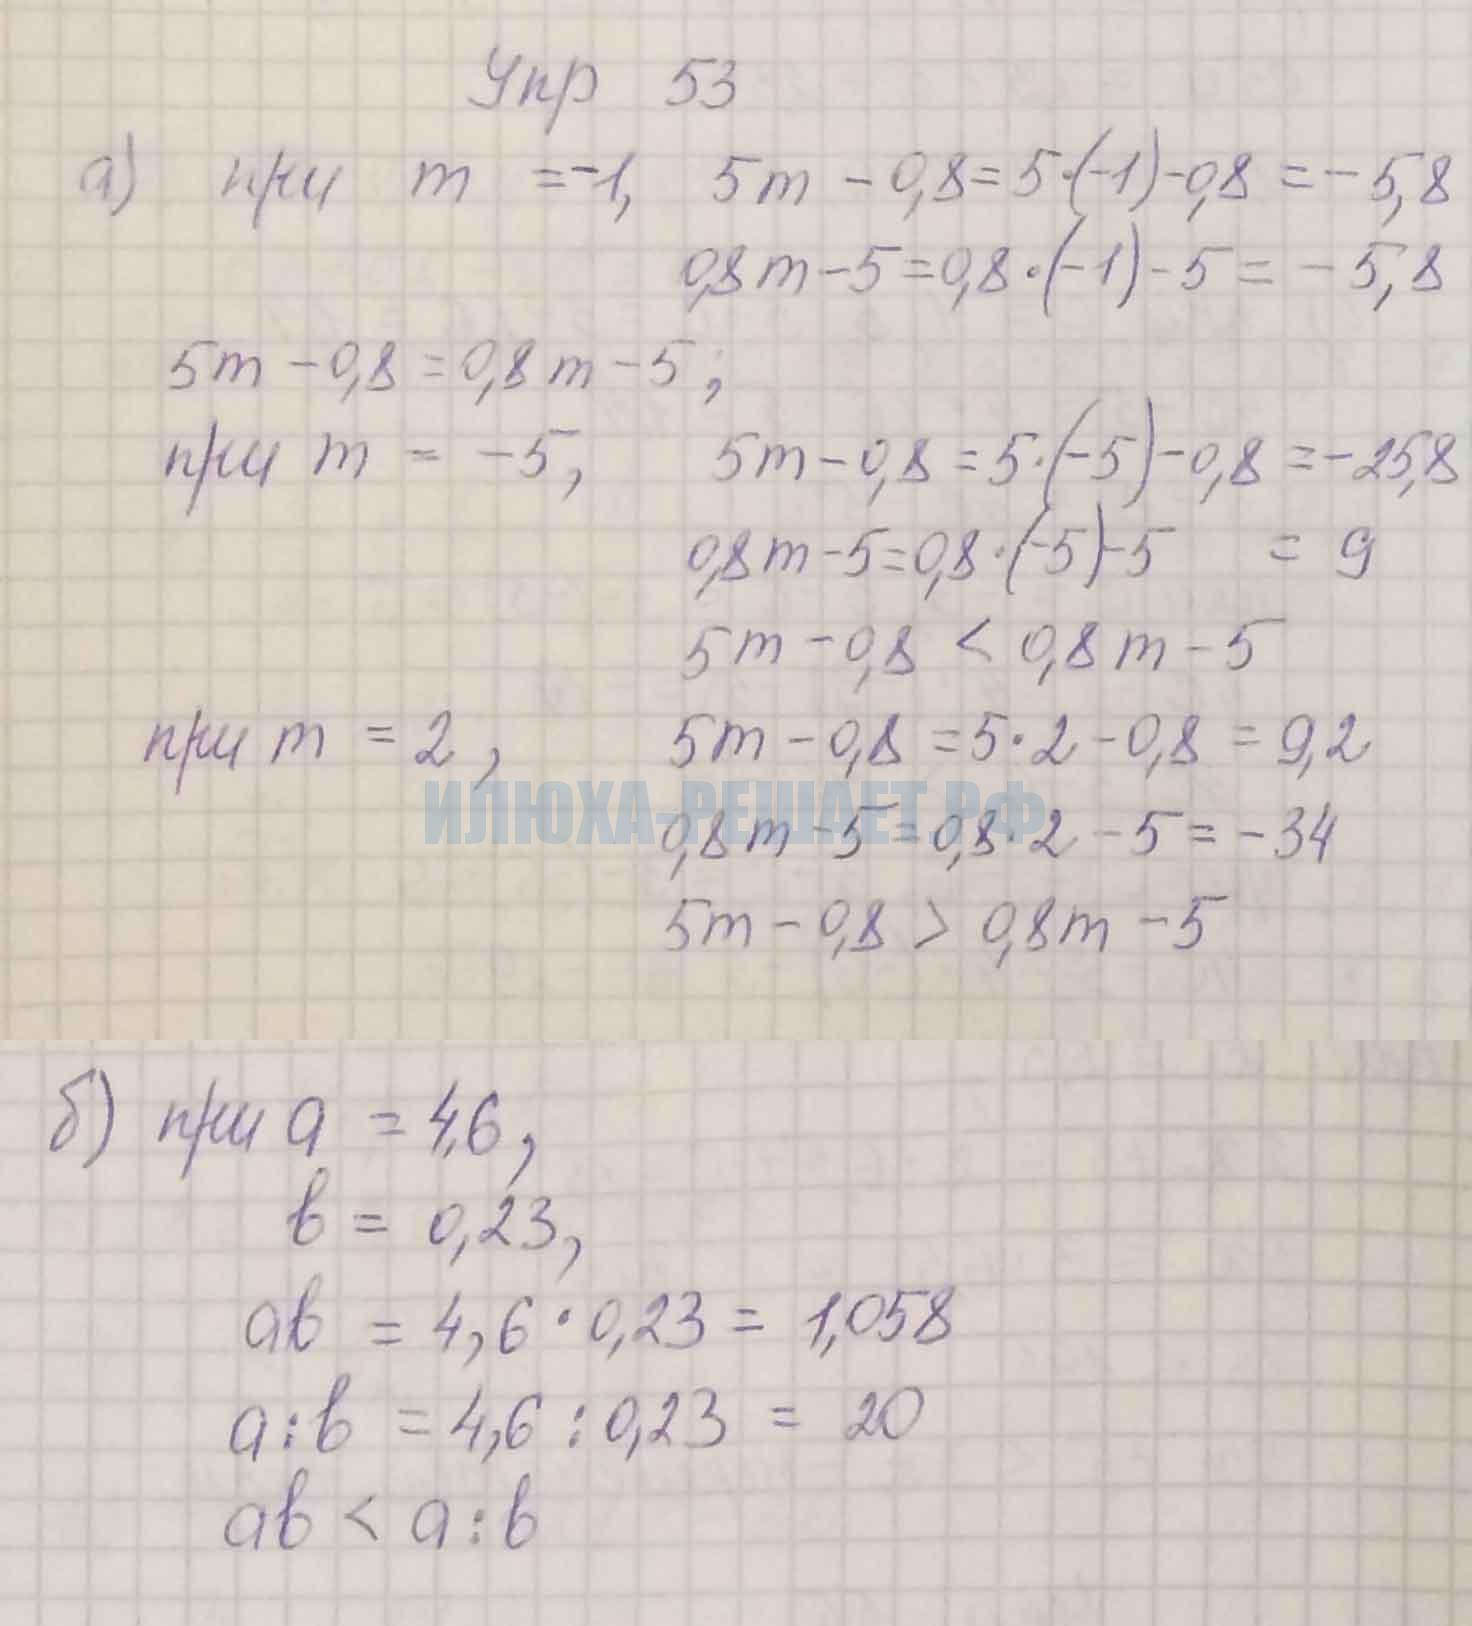 Упр 53
а) при m = -1, 5m - 0,8 = 5·(-1) - 0,8 = -5,8
0,8m - 5 = 0,8·(-1) - 5 = -5,8
5m - 0,8 = 0,8m - 5;
при m = -5, 5m - 0,8 = 5·(-5) - 0,8 = -25,8
0,8m - 5 = 0,8·(-5) - 5 = 9
5m - 0,8 < 0,8m - 5
при m = 2, 5m - 0,8 = 5·2 - 0,8 = 9,2
ИЛЮХА-РЕШАЕТ.РФ
0,8m - 5 = 0,8·2 - 5 = -34
5m - 0,8 > 0,8m - 5
б) при a = 4,6,
b = 0,23,
ab = 4,6·0,23 = 1,058
a:b = 4,6:0,23 = 20
ab < a:b